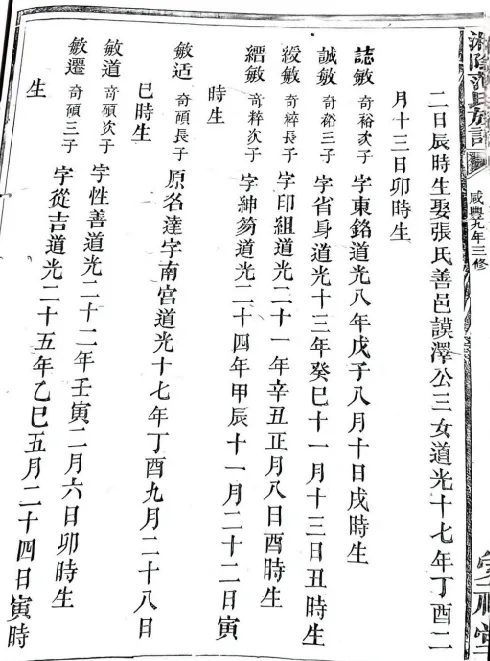 族譜
咸豐九年三修
二日辰時生娶張氏善邑謨澤公三女道光十七年丁酉二
月十三日卯時生
誌敏 奇裕次子 字東銘道光八年戊子八月十日戌時生
誠敏 奇裕三子 字省身道光十三年癸巳十一月十三日丑時生
綬敏 奇粹長子 字印組道光二十一年辛丑正月八日酉時生
縉敏 奇粹次子 字紳笏道光二十四年甲辰十一月二十二日寅
時生
敏适 奇碩長子 原名達字南宮道光十七年丁酉九月二十八日
巳時生
敏道 奇碩次子 字性善道光二十二年壬寅二月六日卯時生
敏遷 奇碩三子 字從吉道光二十五年乙巳五月二十四日寅時
生